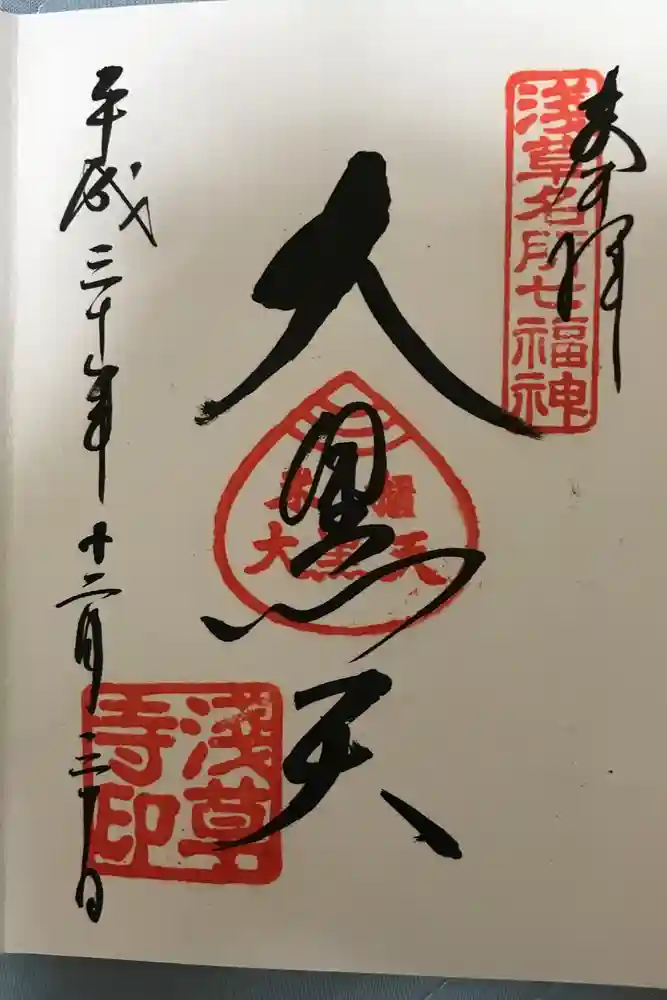 奉拝
浅草名所七福神
大黒天
米櫃
大黒天
浅草
寺印
平成三十年十二月三十日